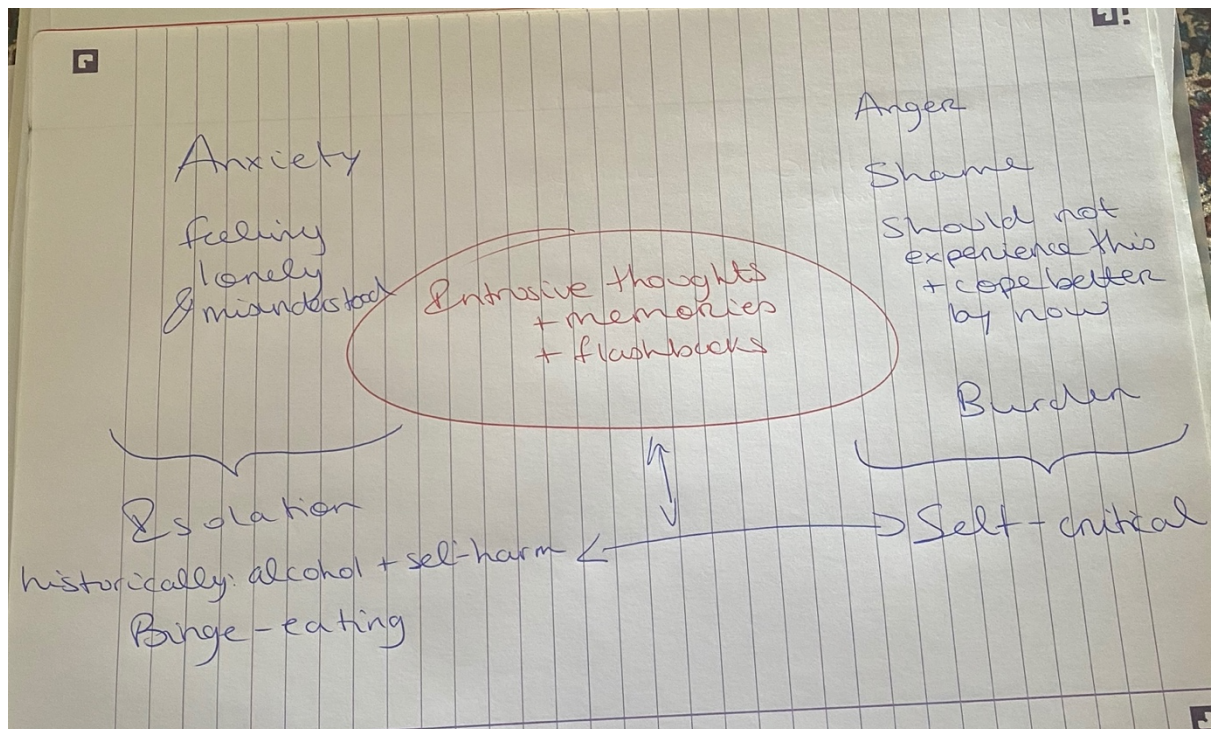 Anxiety
feeling
lonely
& misunderstood
Intrusive thoughts
+ memories
+ flashbacks
Anger
Shame
Should not
experience this
+ cope better
by now
Burden
Isolation
historically: alcohol + self-harm
Binge-eating
Self-critical